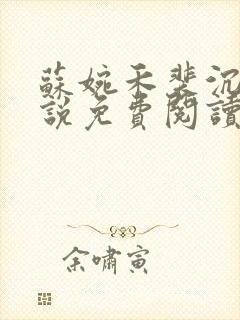 蘇婉禾裴沉
說免費閱讀
余嘯寅